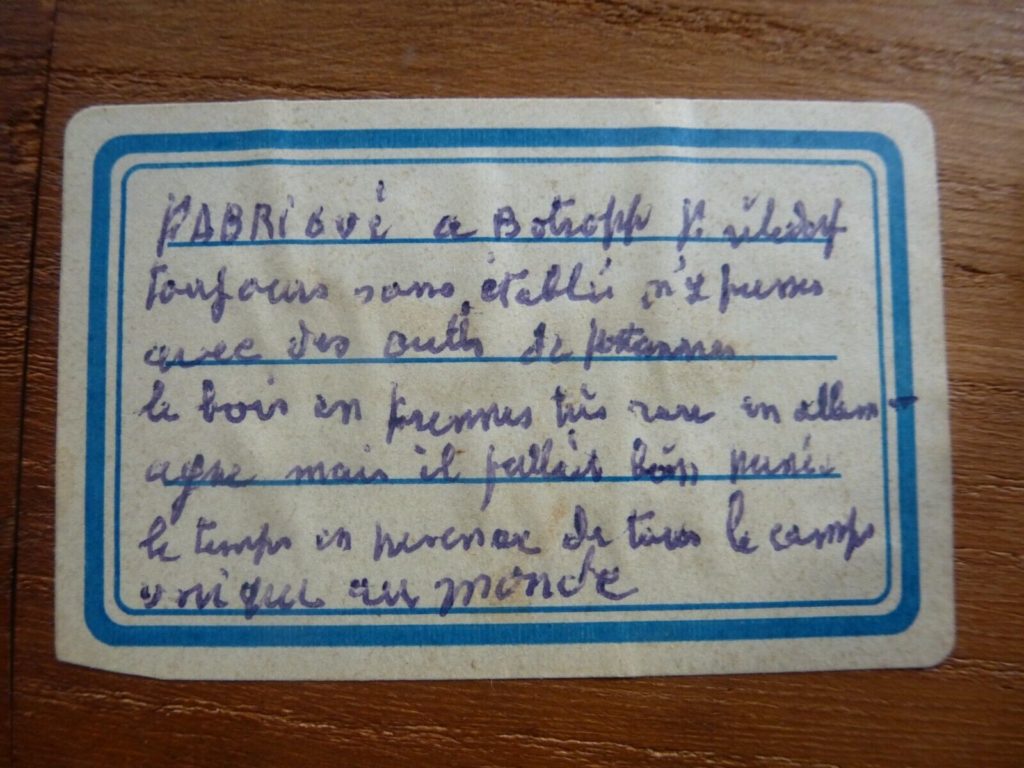 FABRIQUÉ a Botropp
toujours sans établi
avec des outls de
le bois en frennes très rare en allem-
agne mais il fallait bien
le temps en presense de tous le camps
unique au monde